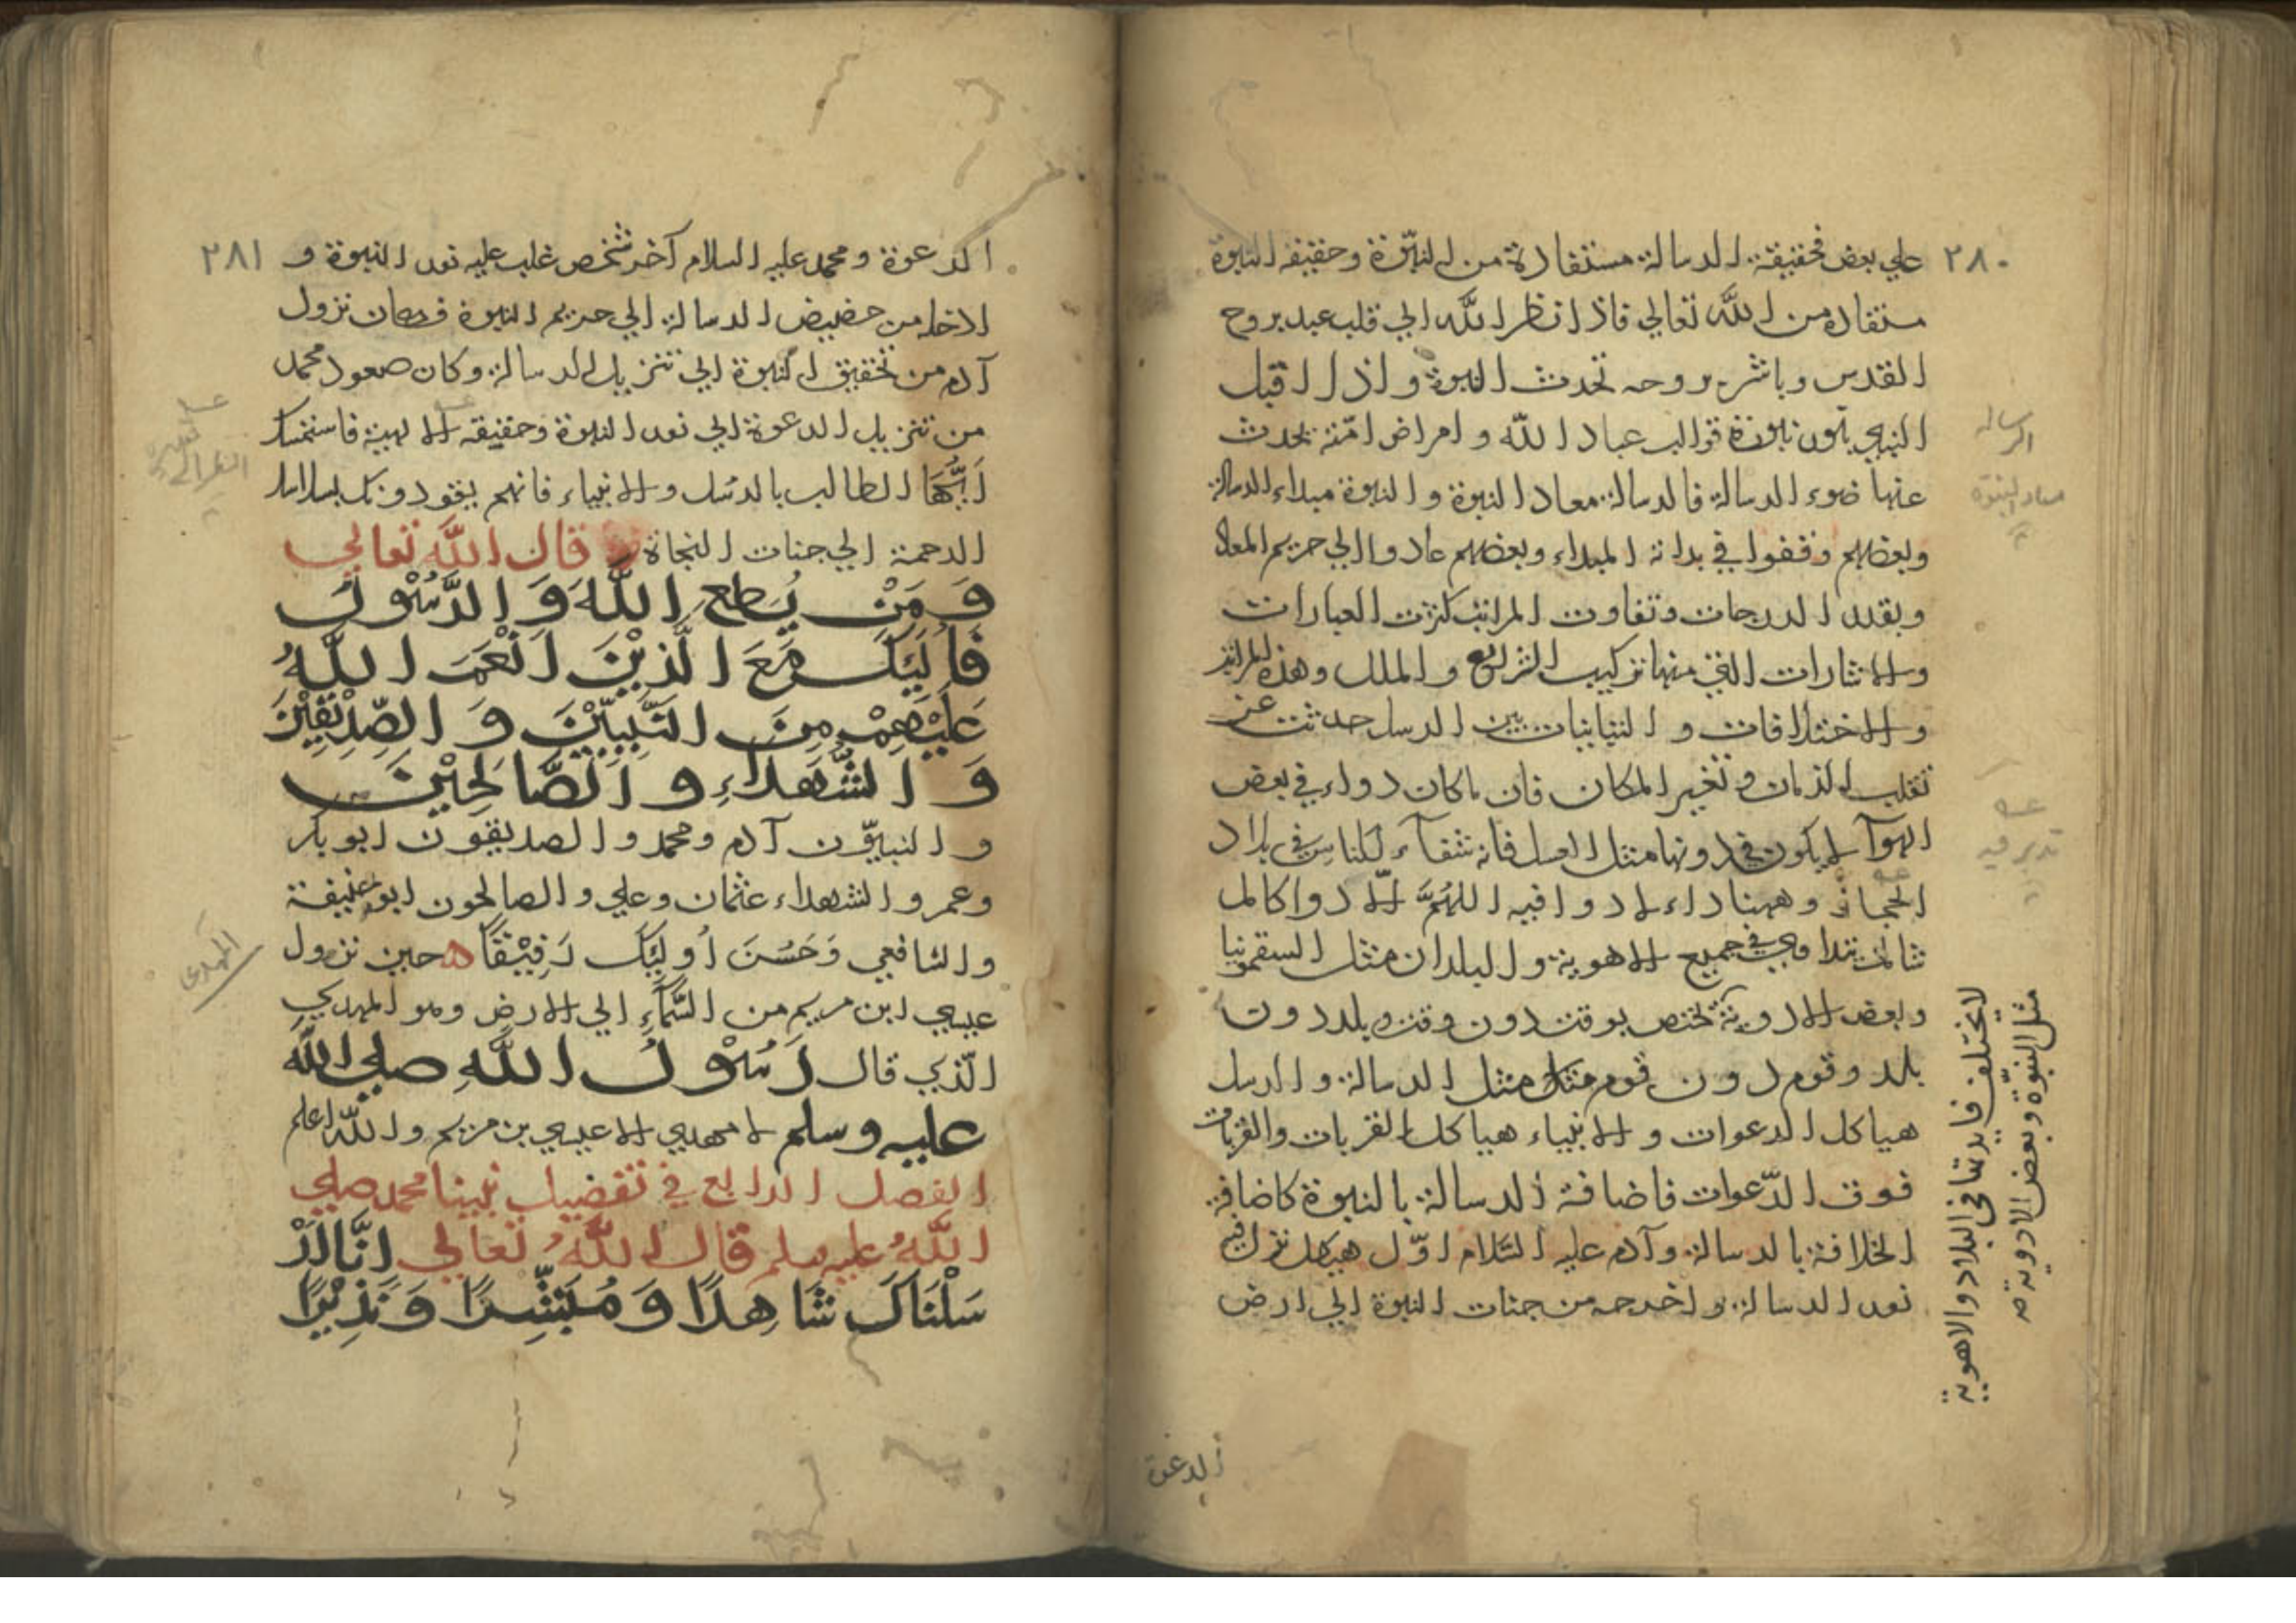 ٢٨٠
علي بعض فحقيقة الرسالة مستفادة من النبوّة وحقيقة النبوة
مستفاده من اللّه تعالي فاذا نظر اللّه الي قلب عبد بروح
القدس وباشر بروحه تحدث النبوة واذا اقبل
النبي بنور نبوته قوالب عباد اللّه وامراض امّته يحدث
عنها ضوء الرسالة فالرسالة معاد النبوة والنبوة مبداء الرسالة
وبعضهم وقفوا في بداية المبداء وبعضهم عادوا الي حريم المعاد
وبقدر الدرجات وتفاوت المراتب كثرت العبارات
والاشارات التي منها تركيب الشرائع والملل وهذه المراتب
والاختلافات والتباينات بين الرسل حدثت عن
تقلب الزمان وتغير المكان فان ما كان دواء في بعض
الهوآ لا يكون في دونها مثل العسل فانه شفآء للناس في بلاد
الحجاز وههنا داء لا دوا فيه اللهُمَّ الّا دوا كامل
تداوي في جميع الاهوية والبلدان مثل السقمونيا
وبعض الادوية تختص بوقت دون وقت وبلد دون
بلد وقوم دون قوم مثل الرسالة والرسل
هياكل الدعوات والانبياء هياكل القربات والقربات
فوق الدّعوات فاضافة الرسالة بالنبوة كاضافة
الخلافة بالرسالة وآدم عليه السَّلام اوّل هيكل نزل فيه
نور الرسالة واخرجه من جنات النبوة الي ارض
الدعوة
الرساله
معاد النبوة
تدبر فيه
لا يختلف فايدتها في البلاد والاهوية
مثل النبوّة وبعض الادوية صه
٢٨١
الدعوة ومحمد عليه السلام آخر شخص غلب عليه نور النبوة و
الاخلا من حضيض الرسالة الي حريم النبوة فكان نزول
آدم من تحقيق النبوة الي تنزيل الرسالة وكان صعود محمد
من تنزيل الدعوة الي نور النبوة وحقيقه الالهية فاستمسك
اَيُّهَا الطالب بالرسل والانبياء فانهم يقودونك بسلاسل
الرحمة الي جنات النجاة قال اللّه تعالي
وَمَنْ يُطع اللّهَ وَالرَّسُوْلَ
فَاُلَيِكَ مَعَ الَّذِيْنَ اَنْعَمَ اللّهُ
عَلَيْهِمْ مِنَ النَّبِيّيْنَ وَالصِّدِيْقِيْنَ
وَالشُّهَدَاءِ وَالصَّالحِيْنَ
والنبيّون آدم ومحمد والصديقون ابوبكر
وعمر والشهداء عثمان وعلي والصالحون ابو حنيفة
والشافعي وَحَسُنَ اُولَيِكَ رَفِيْقًا ه حين نزول
عيسي ابن مريم من السَّمآءِ الي الارض وهو المهدي
الّذي قال رَسُوْلُ اللّهِ صلي اللّه
عليه وسلم لا مهدي الا عيسي بن مريم واللّه اعلم
الفصل الرابع في تفضيل نبينا محمد صلي
اللّهُ عليه سلم قال اللّهُ تعالي انَّا اَرْ
سَلْنَاكَ شَاهِدًا وَمُبَشِّرًا وَنَذِيْرًا
المهدى